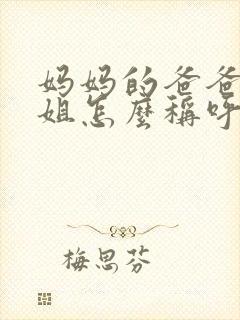 妈妈的爸爸
姐怎麼稱呼
梅思芬